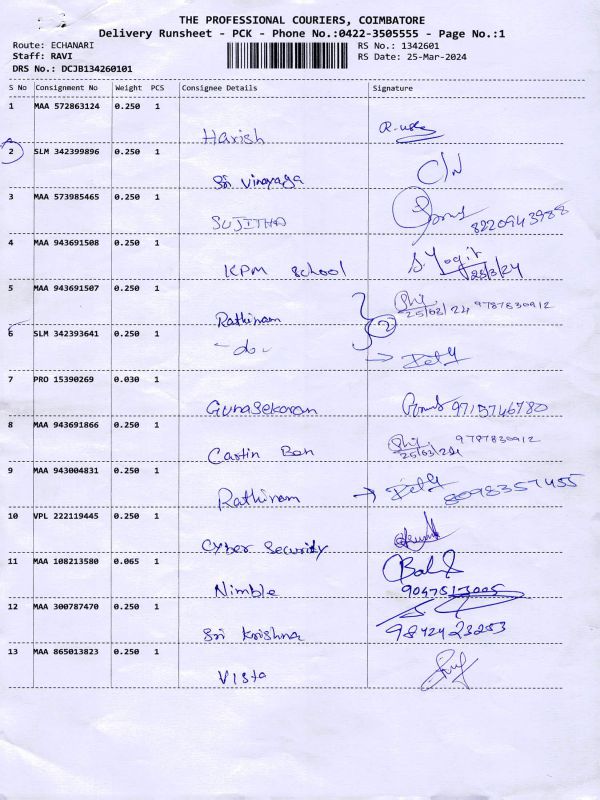 THE PROFESSIONAL COURIERS, COIMBATORE
Delivery Runsheet - PCK - Phone No.:0422-3505555 - Page No.:1
Route: ECHANARI
Staff: RAVI
DRS No.: DCJB134260101
RS No.: 1342601
RS Date: 25-Mar-2024
S No Consignment No Weight PCS Consignee Details Signature
1 MAA 572863124 0.250 1
Harish
2 SLM 342399896 0.250 1
Sri Vinayaga C/N
3 MAA 573985465 0.250 1
SUJITHA 8220943988
4 MAA 943691508 0.250 1
KPM School S. Yogit
25/3/24
5 MAA 943691507 0.250 1
Rathinam 9787830912
25/03/24
2
6 SLM 342393641 0.250 1
- do -
7 PRO 15390269 0.030 1
Gunasekaran 9715746780
8 MAA 943691866 0.250 1
9787830912
25/03/24
9 MAA 943004831 0.250 1
Rathinam 8098357455
10 VPL 222119445 0.250 1
Cyber Security
11 MAA 108213580 0.065 1
Nimble
12 MAA 300787470 0.250 1
Sri Krishna 9842423253
13 MAA 865013823 0.250 1
Vista